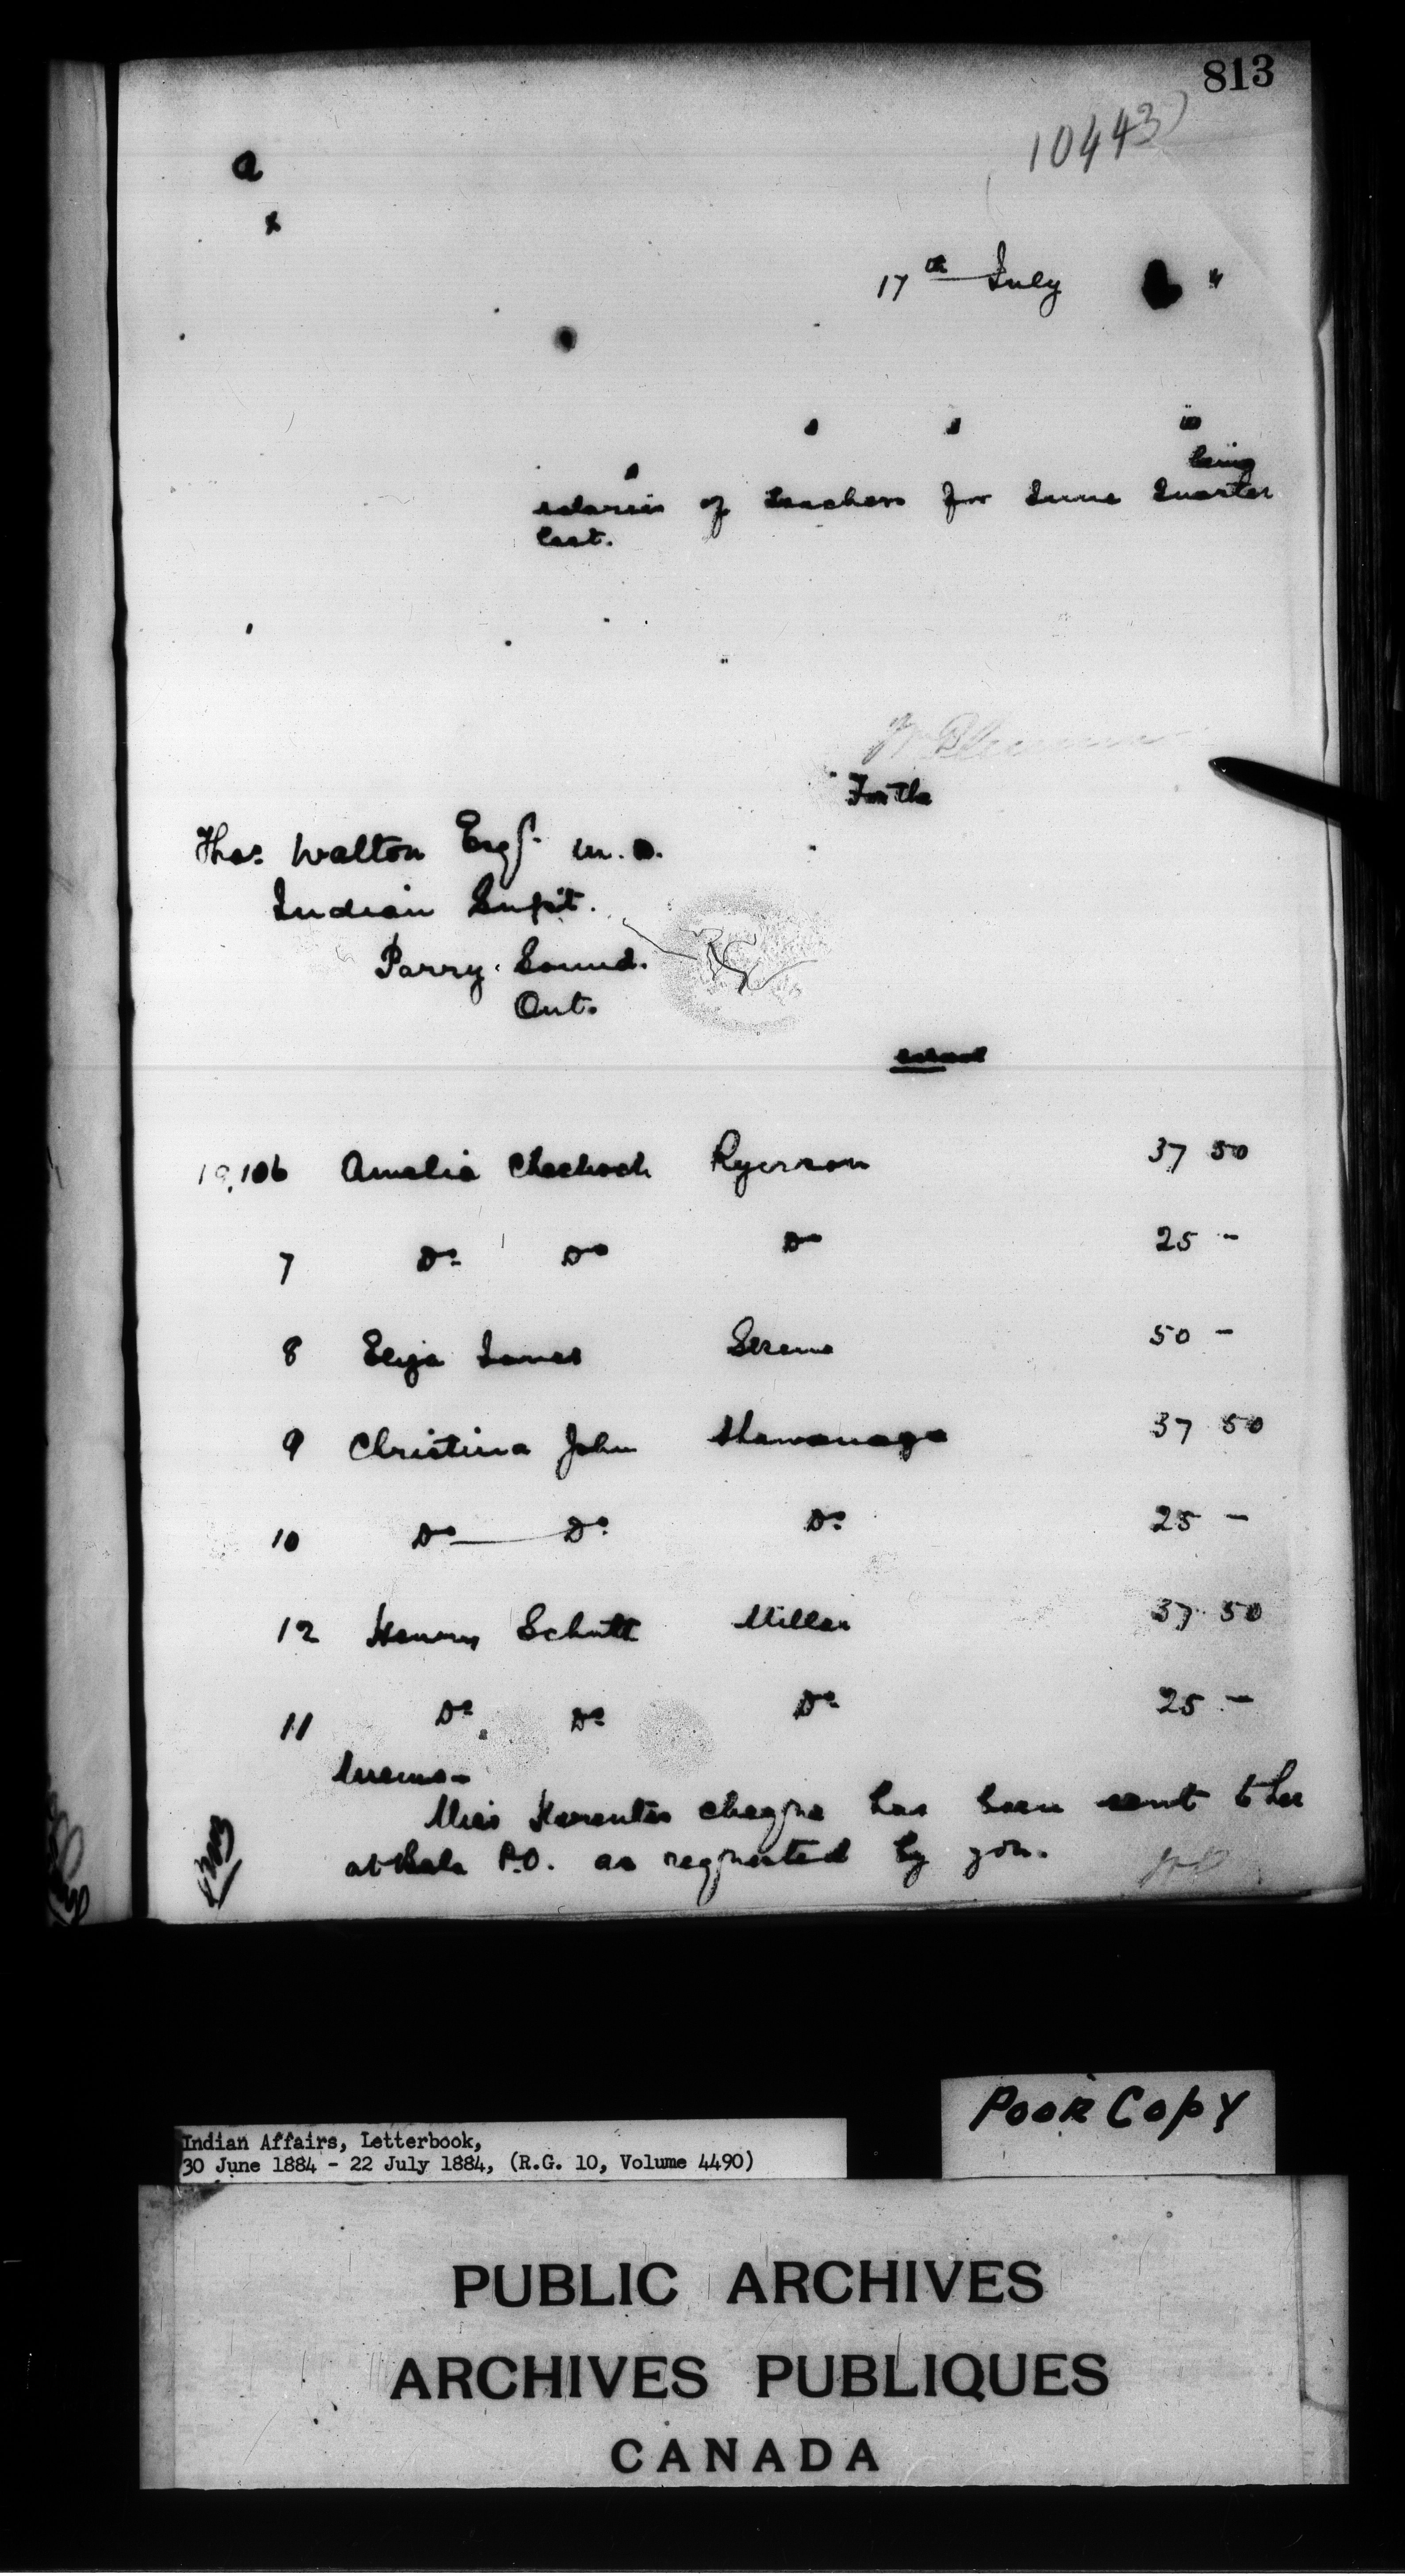 813
10443
a
17th July
being
salaries of teachers for June Quarter
last.
For the
Thos. Walton Esq. M.D.
Indian Supt.
Parry Sound.
Ont.
school
19,106 Amelia Chechock Ryerson 37 50
7 Do Do Do 25 -
8 Eliza James Serene 50 -
9 Christina John Shawanaga 37 50
10 Do Do Do 25 -
12 Henry Schutt Miller 37 50
11 Do Do Do 25 -
Memo-
Miss cheque has been sent to her
at Bala P.O. as requested by you.
Poor Copy
Indian Affairs, Letterbook,
30 June 1884 - 22 July 1884, (R.G. 10, Volume 4490)
PUBLIC ARCHIVES
ARCHIVES PUBLIQUES
CANADA